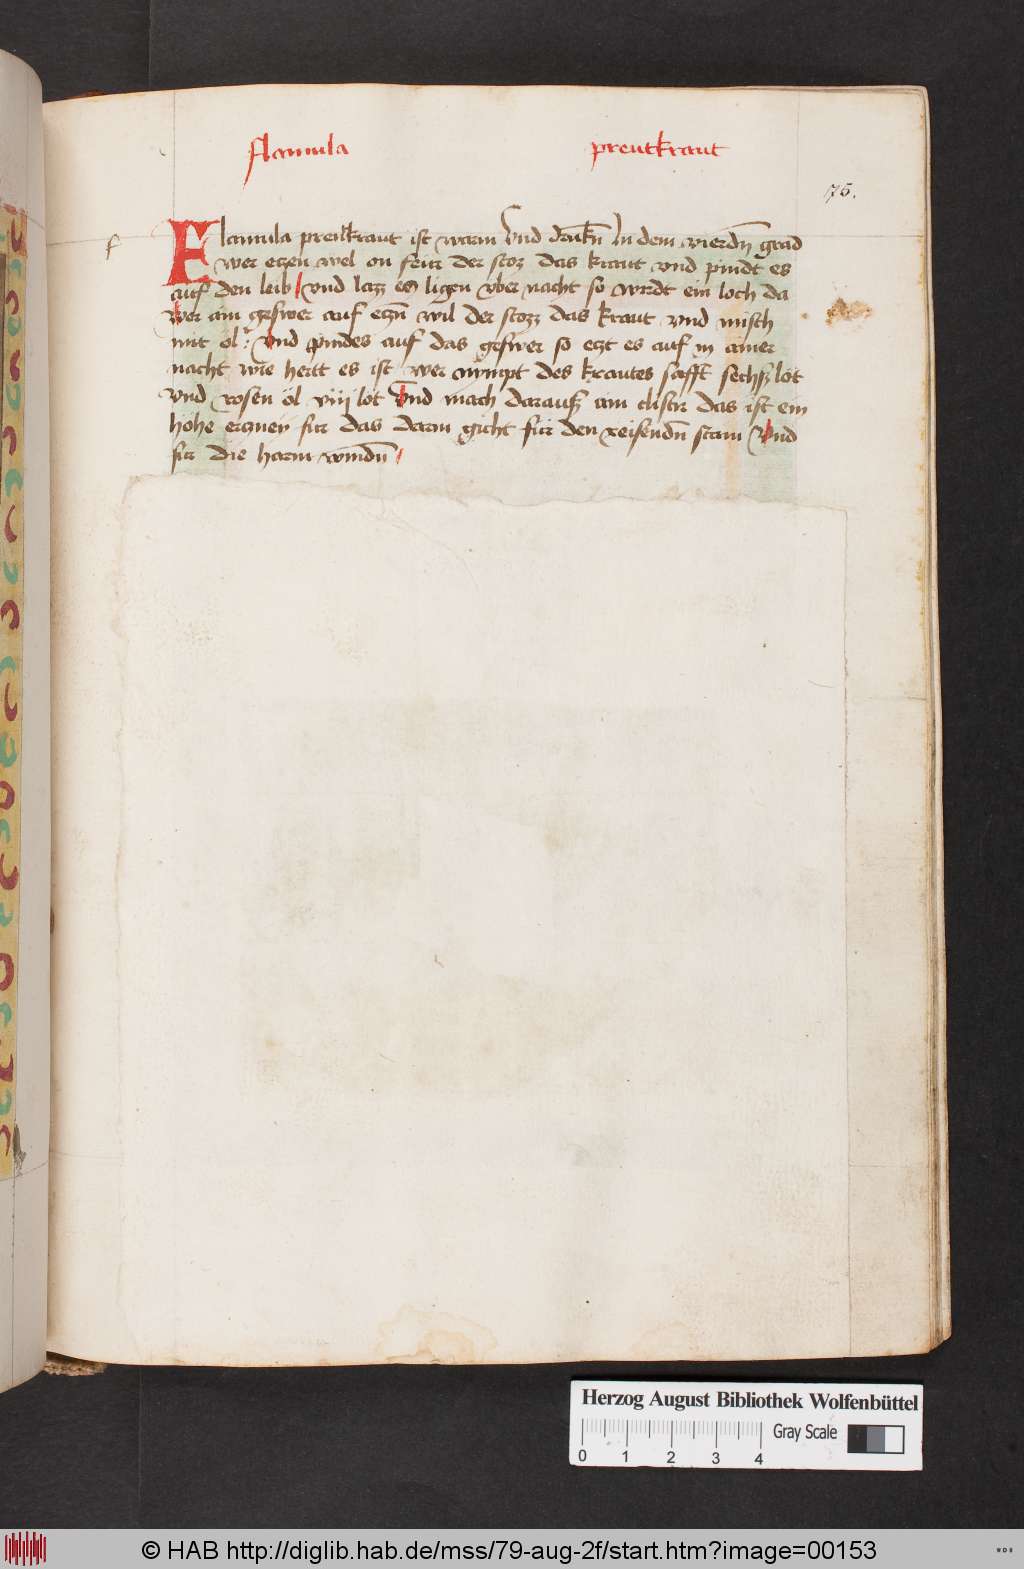 flamula preutkraut
75.
f
Flamula preutkraut ist warm vnd drukn̄ In dem vierdn̄ grad
wer eczen wel on feur der stoz das kraut vnd pindt es
auf den leib vnd lazz es ligen vber nacht so wirdt ein loch da
wer ain geswer auf eczn̄ wil der stozz das kraut vnd misch
mit öl vnd pindes auf das geswer so eczt es auf in ainer
nacht wie hertt es ist wer nympt des krautes safft sechs lot
vnd rosen öl viij lot vnd mach darauß ain clistir das ist ein
hohe erczney fur das darm gicht fur den reisendn̄ stain vnd
fur die harm windn̄
Herzog August Bibliothek Wolfenbüttel
0 1 2 3 4 Gray Scale
© HAB http://diglib.hab.de/mss/79-aug-2f/start.htm?image=00153